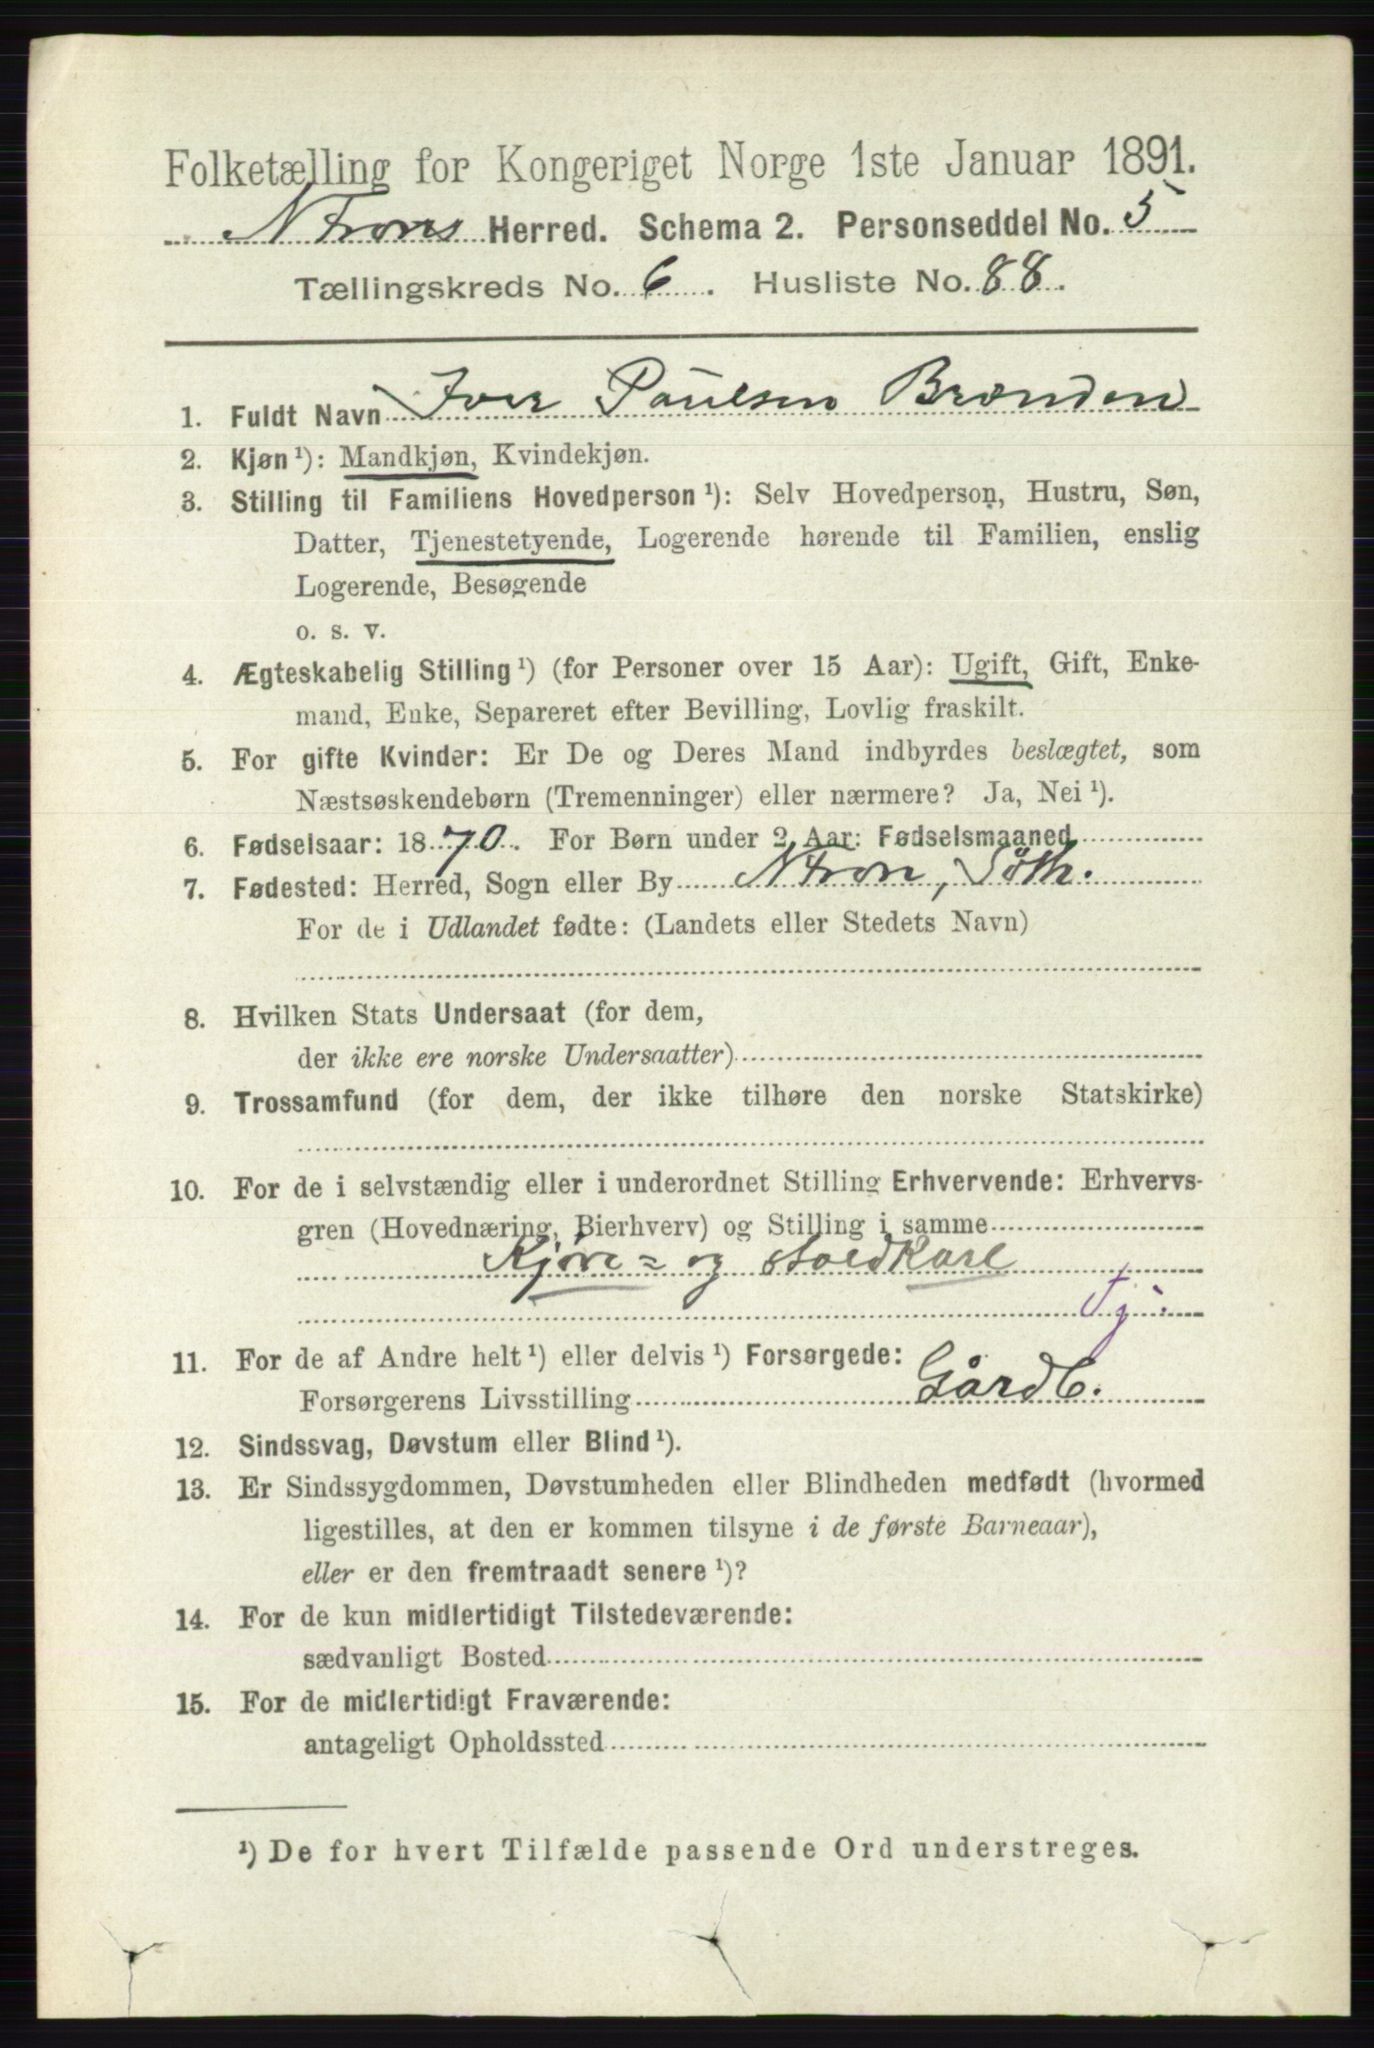 Folketælling for Kongeriget Norge 1ste Januar 1891.
N Frons Herred. Schema 2. Personseddel No. 5
Tællingskreds No. 6. Husliste No. 88.
1. Fuldt Navn Iver Paulsen Brænden
2. Kjøn ¹): Mandkjøn, Kvindekjøn.
3. Stilling til Familiens Hovedperson ¹): Selv Hovedperson, Hustru, Søn,
Datter, Tjenestetyende, Logerende hørende til Familien, enslig
Logerende, Besøgende
o. s. v.
4. Ægteskabelig Stilling ¹) (for Personer over 15 Aar): Ugift, Gift, Enke-
mand, Enke, Separeret efter Bevilling, Lovlig fraskilt.
5. For gifte Kvinder: Er De og Deres Mand indbyrdes beslægtet, som
Næstsøskendebørn (Tremenninger) eller nærmere? Ja, Nei ¹).
6. Fødselsaar: 1870. For Børn under 2 Aar: Fødselsmaaned
7. Fødested: Herred, Sogn eller By N Fron, Söth.
For de i Udlandet fødte: (Landets eller Stedets Navn)
8. Hvilken Stats Undersaat (for dem,
der ikke ere norske Undersaatter)
9. Trossamfund (for dem, der ikke tilhøre den norske Statskirke)
10. For de i selvstændig eller i underordnet Stilling Erhvervende: Erhvervs-
gren (Hovednæring, Bierhverv) og Stilling i samme
Kjøre= og Stoldkarl
Tj.
11. For de af Andre helt ¹) eller delvis ¹) Forsørgede:
Forsørgerens Livsstilling Gårdb.
12. Sindssvag, Døvstum eller Blind ¹).
13. Er Sindssygdommen, Døvstumheden eller Blindheden medfødt (hvormed
ligestilles, at den er kommen tilsyne i de første Barneaar),
eller er den fremtraadt senere ¹)?
14. For de kun midlertidigt Tilstedeværende:
sædvanligt Bosted
15. For de midlertidigt Fraværende:
antageligt Opholdssted
¹) De for hvert Tilfælde passende Ord understreges.